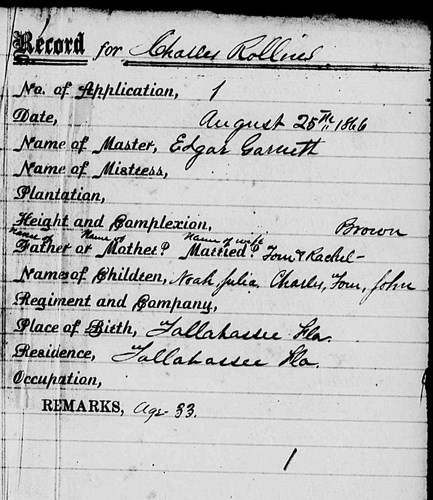 Record for Charles Rollins
No. of Application, 1
Date, August 25th 1866
Name of Master, Edgar Garnett
Name of Mistress,
Plantation,
Height and Complexion, Brown
Name of Name of Name of wife
Father or Mother? Married? Tom & Rachel-
Names of Children, Noah, Julia, Charles, Tom, John
Regiment and Company,
Place of Birth, Tallahassee Fla.
Residence, Tallahassee Fla.
Occupation,
REMARKS, Age 33.
1